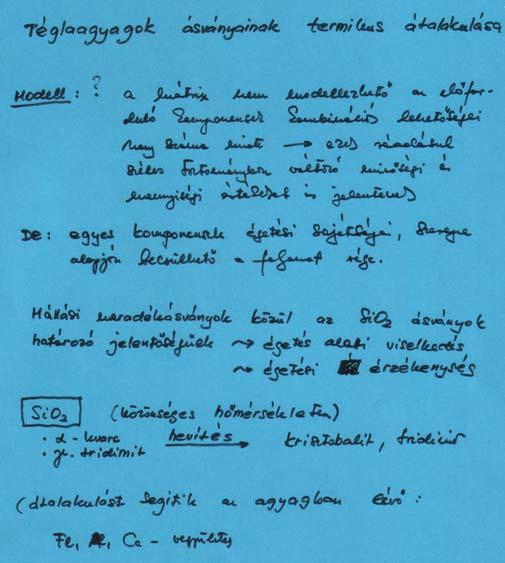 Téglaagyagok ásványainak termikus átalakulása
Modell: ? a mátrix nem modellezhető az előfor-
duló komponensek kombinációs lehetőségei
nagy száma miatt → ezek ráadásul
széles tartományban változó minőségi és
mennyiségi értékeket is jelentenek
DE: egyes komponensek égetési sajátságai, szerepe
alapján becsülhető a folyamat vége.
Mállási maradékásványok közül az SiO2 ásványok
határozó jelentőségűek ⇝ égetés alatti viselkedés
⇝ égetési érzékenység
SiO2 (közönséges hőmérsékleten)
· α - kvarc hevítés → krisztobalit, tridimit
· tridimit
(átalakulást segítik az agyagban lévő:
Fe, Ca - vegyületek